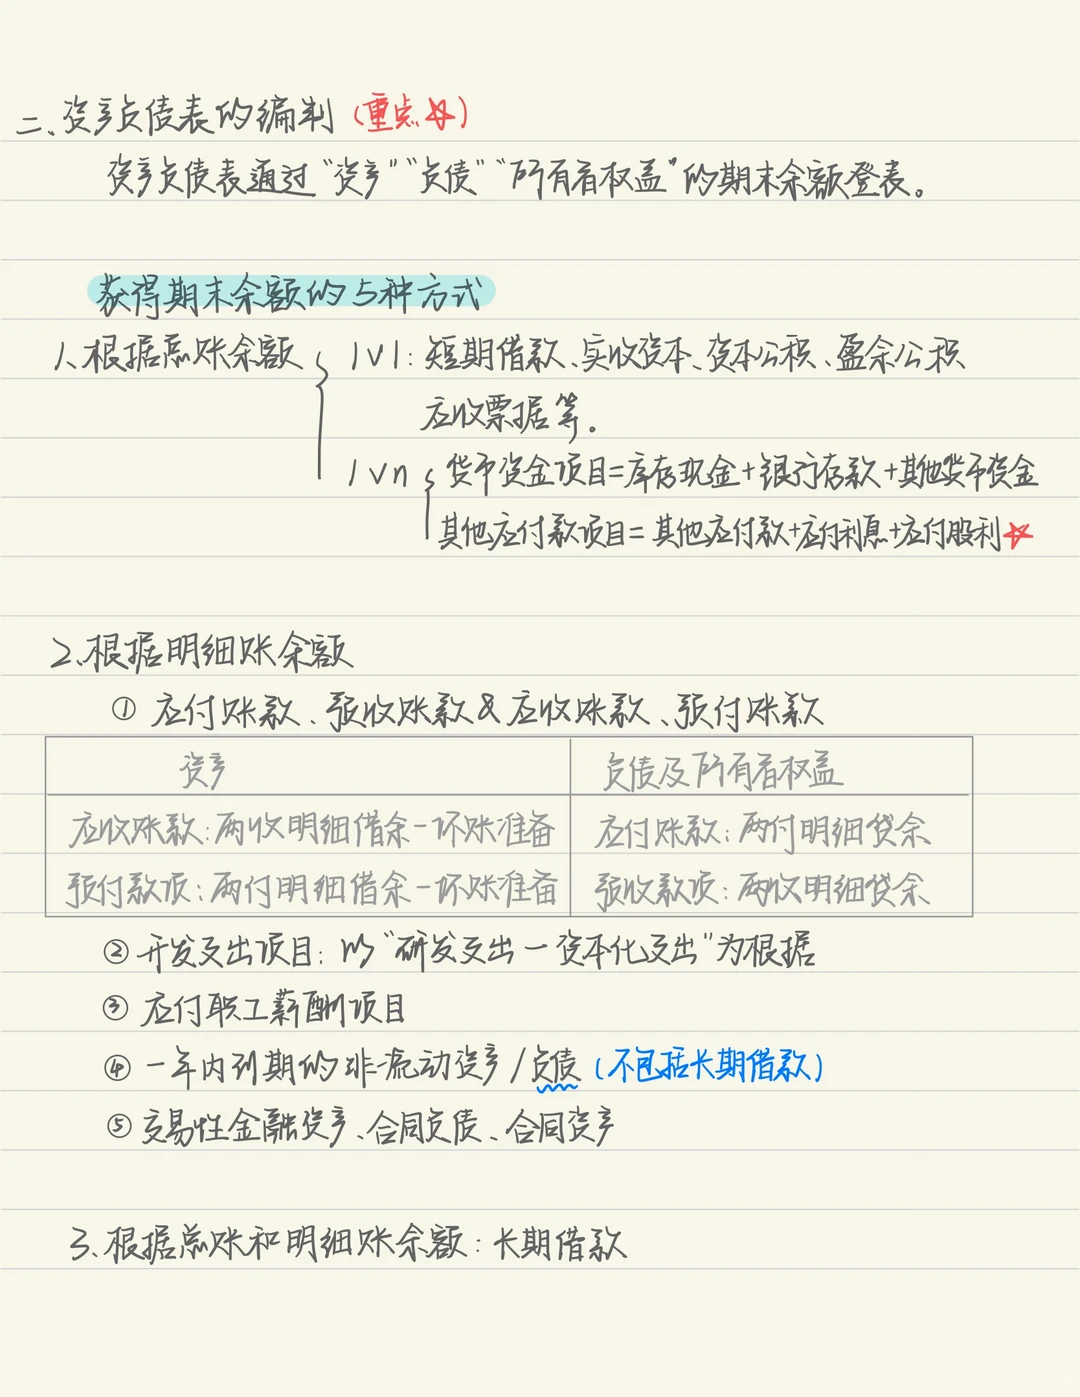 二、资产负债表的编制（重点☆）
资产负债表通过“资产”“负债”“所有者权益”的期末余额登表。
获得期末余额的5种方式
1、根据总账余额 1V1：短期借款、实收资本、资本公积、盈余公积
应收票据等。
1Vn 货币资金项目=库存现金+银行存款+其他货币资金
其他应付款项目=其他应付款+应付利息+应付股利☆
2、根据明细账余额
① 应付账款、预收账款&应收账款、预付账款
资产 负债及所有者权益
应收账款：两收明细借余-坏账准备 应付账款：两付明细贷余
预付款项：两付明细借余-坏账准备 预收款项：两收明细贷余
② 开发支出项目：以“研发支出-资本化支出”为根据
③ 应付职工薪酬项目
④ 一年内到期的非流动资产/负债（不包括长期借款）
⑤ 交易性金融资产、合同负债、合同资产
3、根据总账和明细账余额：长期借款